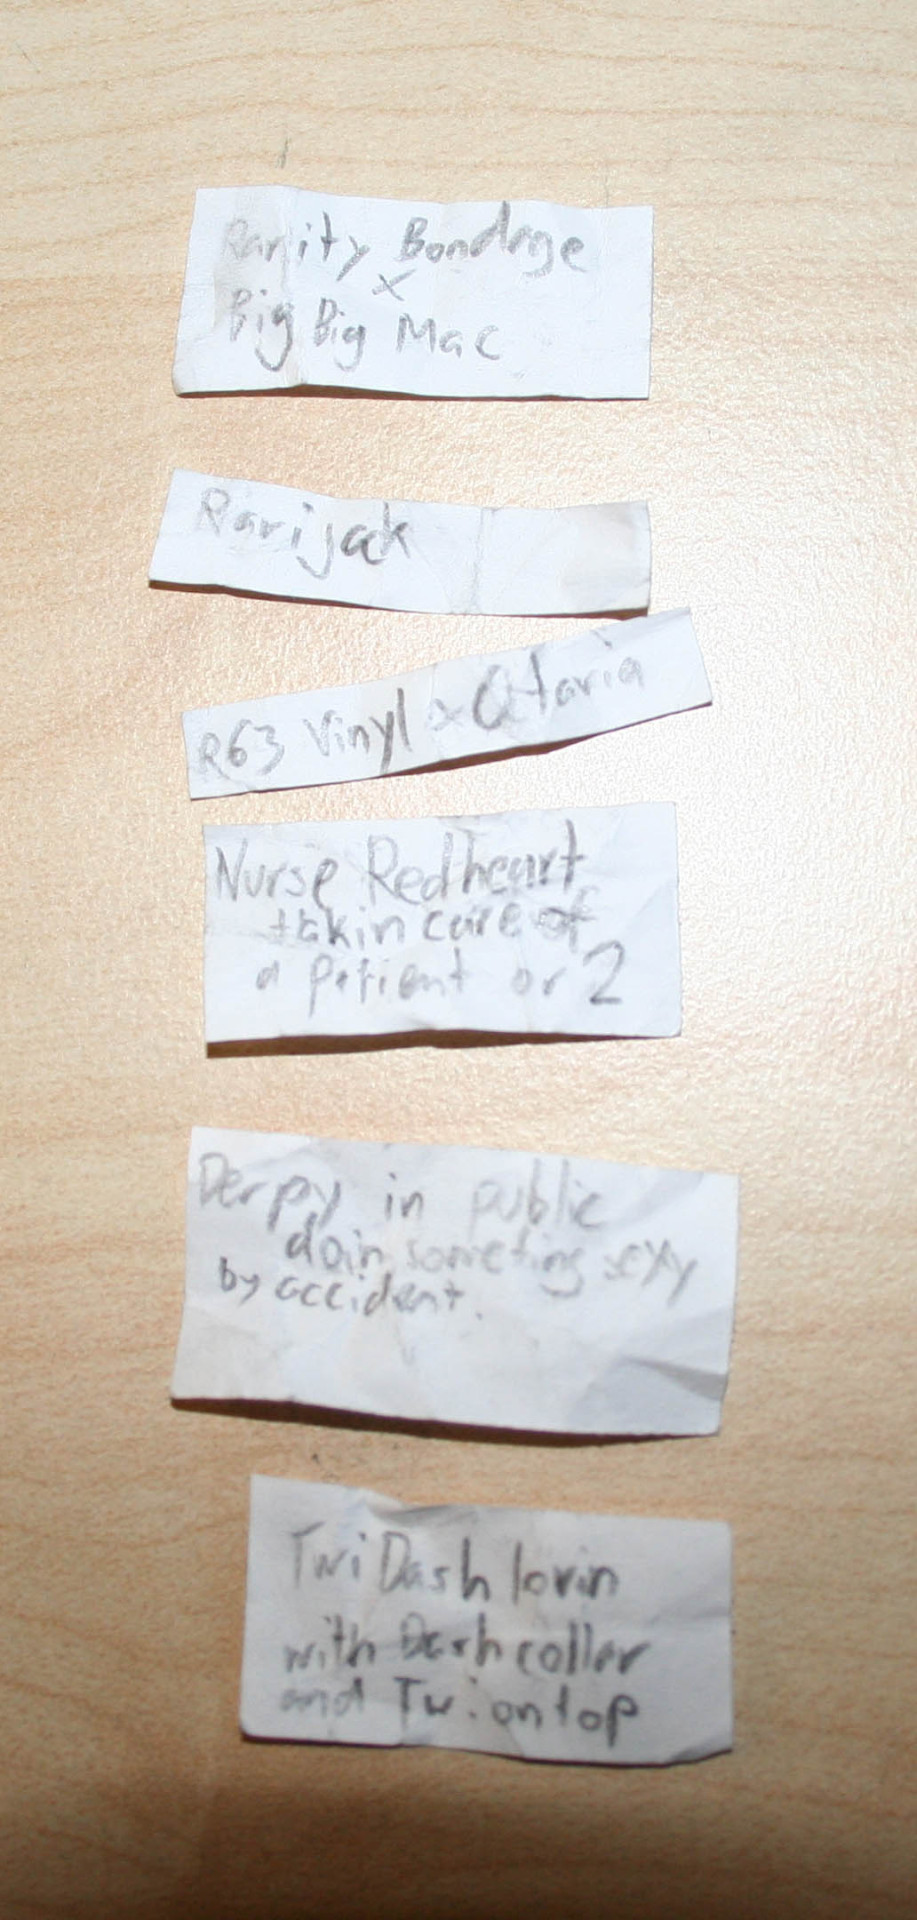 Rarity Bondage
x
Big Big Mac
Rarijack
R63 Vinyl x Octavia
Nurse Redheart
takin care of
a patient or 2
Derpy in public
doin someting sexy
by accident.
TwiDash lovin
with Dash coller
and Twi on top